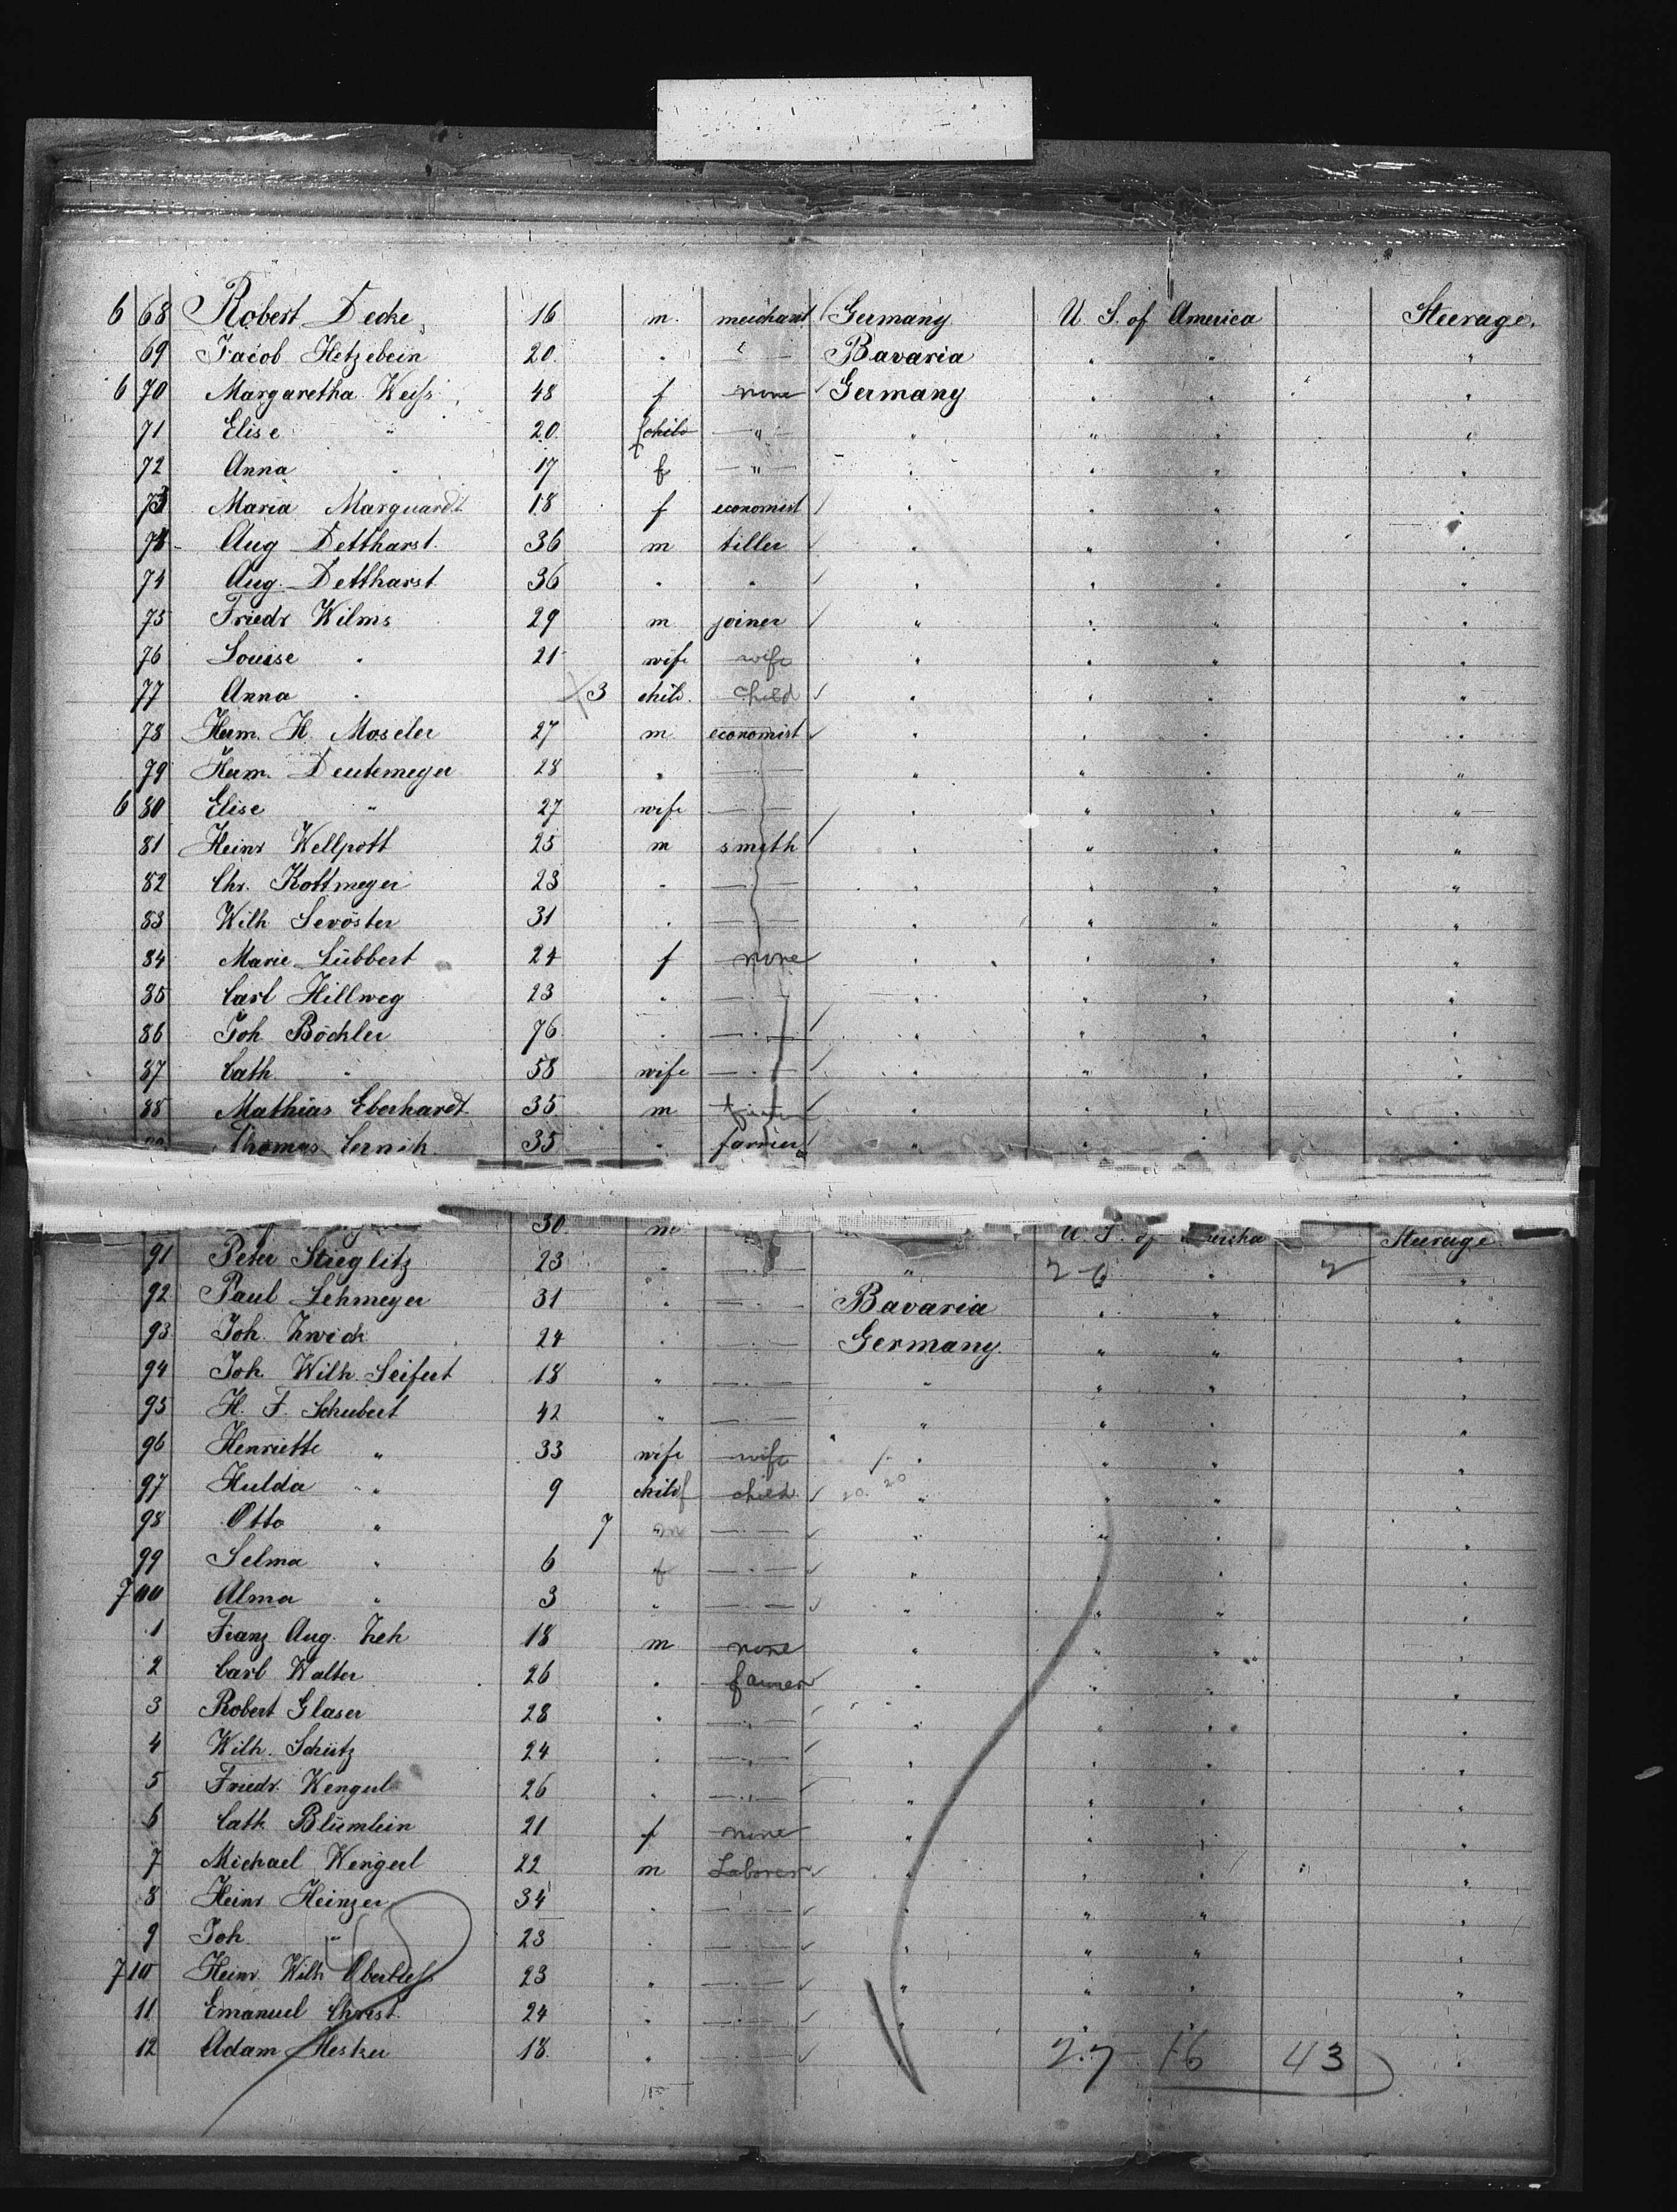 6 68 Robert Decke 16 m. merchant Germany U. S. of America Steerage.
69 Jacob Hetzebein 20. " " Bavaria " " "
6 70 Margaretha Weiss 48 f none Germany " " "
71 Elise " 20. f child " " " " "
72 Anna " 17 f " " " " "
73 Maria Marquardt 18 f economist " " " "
74 Aug Dettharst. 36 m tiller " " " "
74 Aug. Dettharst 36 " " " " " "
75 Friedr Wilms 29 m joiner " " " "
76 Louise " 21 wife wife " " " "
77 Anna " 3 child. child " " " "
78 Herm. H. Moseler 27 m economist " " " "
79 Herm. Deutemeyer 28 " " " " " "
6 80 Elise " 27 wife " " " " "
81 Heinr Wellpott 25 m smith " " " "
82 Chr. Kottmeyer 23 " " " " " "
83 Wilh Sevöster 31 " " " " " "
84 Marie Lübbert 24 f none " " " "
85 Carl Hillweg 23 " " " " " "
86 Joh Böckler 76 " " " " " "
87 Cath " 58 wife " " " " "
88 Mathias Eberhardt 35 m " " " "
Thomas Cernik 35 " farrier " " " "
30 m " U. S. of Steerage
91 Peter Stieglitz 23 " " " 2 6 " 2 "
92 Paul Lehmeyer 31 " " Bavaria " " "
93 Joh. Zwick 24 " " Germany " " "
94 Joh. Wilh. Seifert 18 " " " " " "
95 H. F. Schubert 42 " " " " " "
96 Henriette " 33 wife wife " " " "
97 Hulda " 9 child f child " " " "
98 Otto " 7 m " " " " "
99 Selma " 6 f " " " " "
700 Alma " 3 " " " " " "
1 Franz Aug. Zeh 18 m none " " " "
2 Carl Walter 26 " farmer " " " "
3 Robert Glaser 28 " " " " " "
4 Wilh. Schütz 24 " " " " " "
5 Friedr. Wengert 26 " " " " " "
6 Cath Blümlein 21 f none " " " "
7 Michael Wengert 22 m Laborer " " " "
8 Heinr Heinzer 34 " " " " " "
9 Joh. " 23 " " " " " "
710 Heinr Wilh 23 " " " " " "
11 Emanuel Christ. 24 " " " " " "
12 Adam Hesker 18. " " " 27 16 43 "